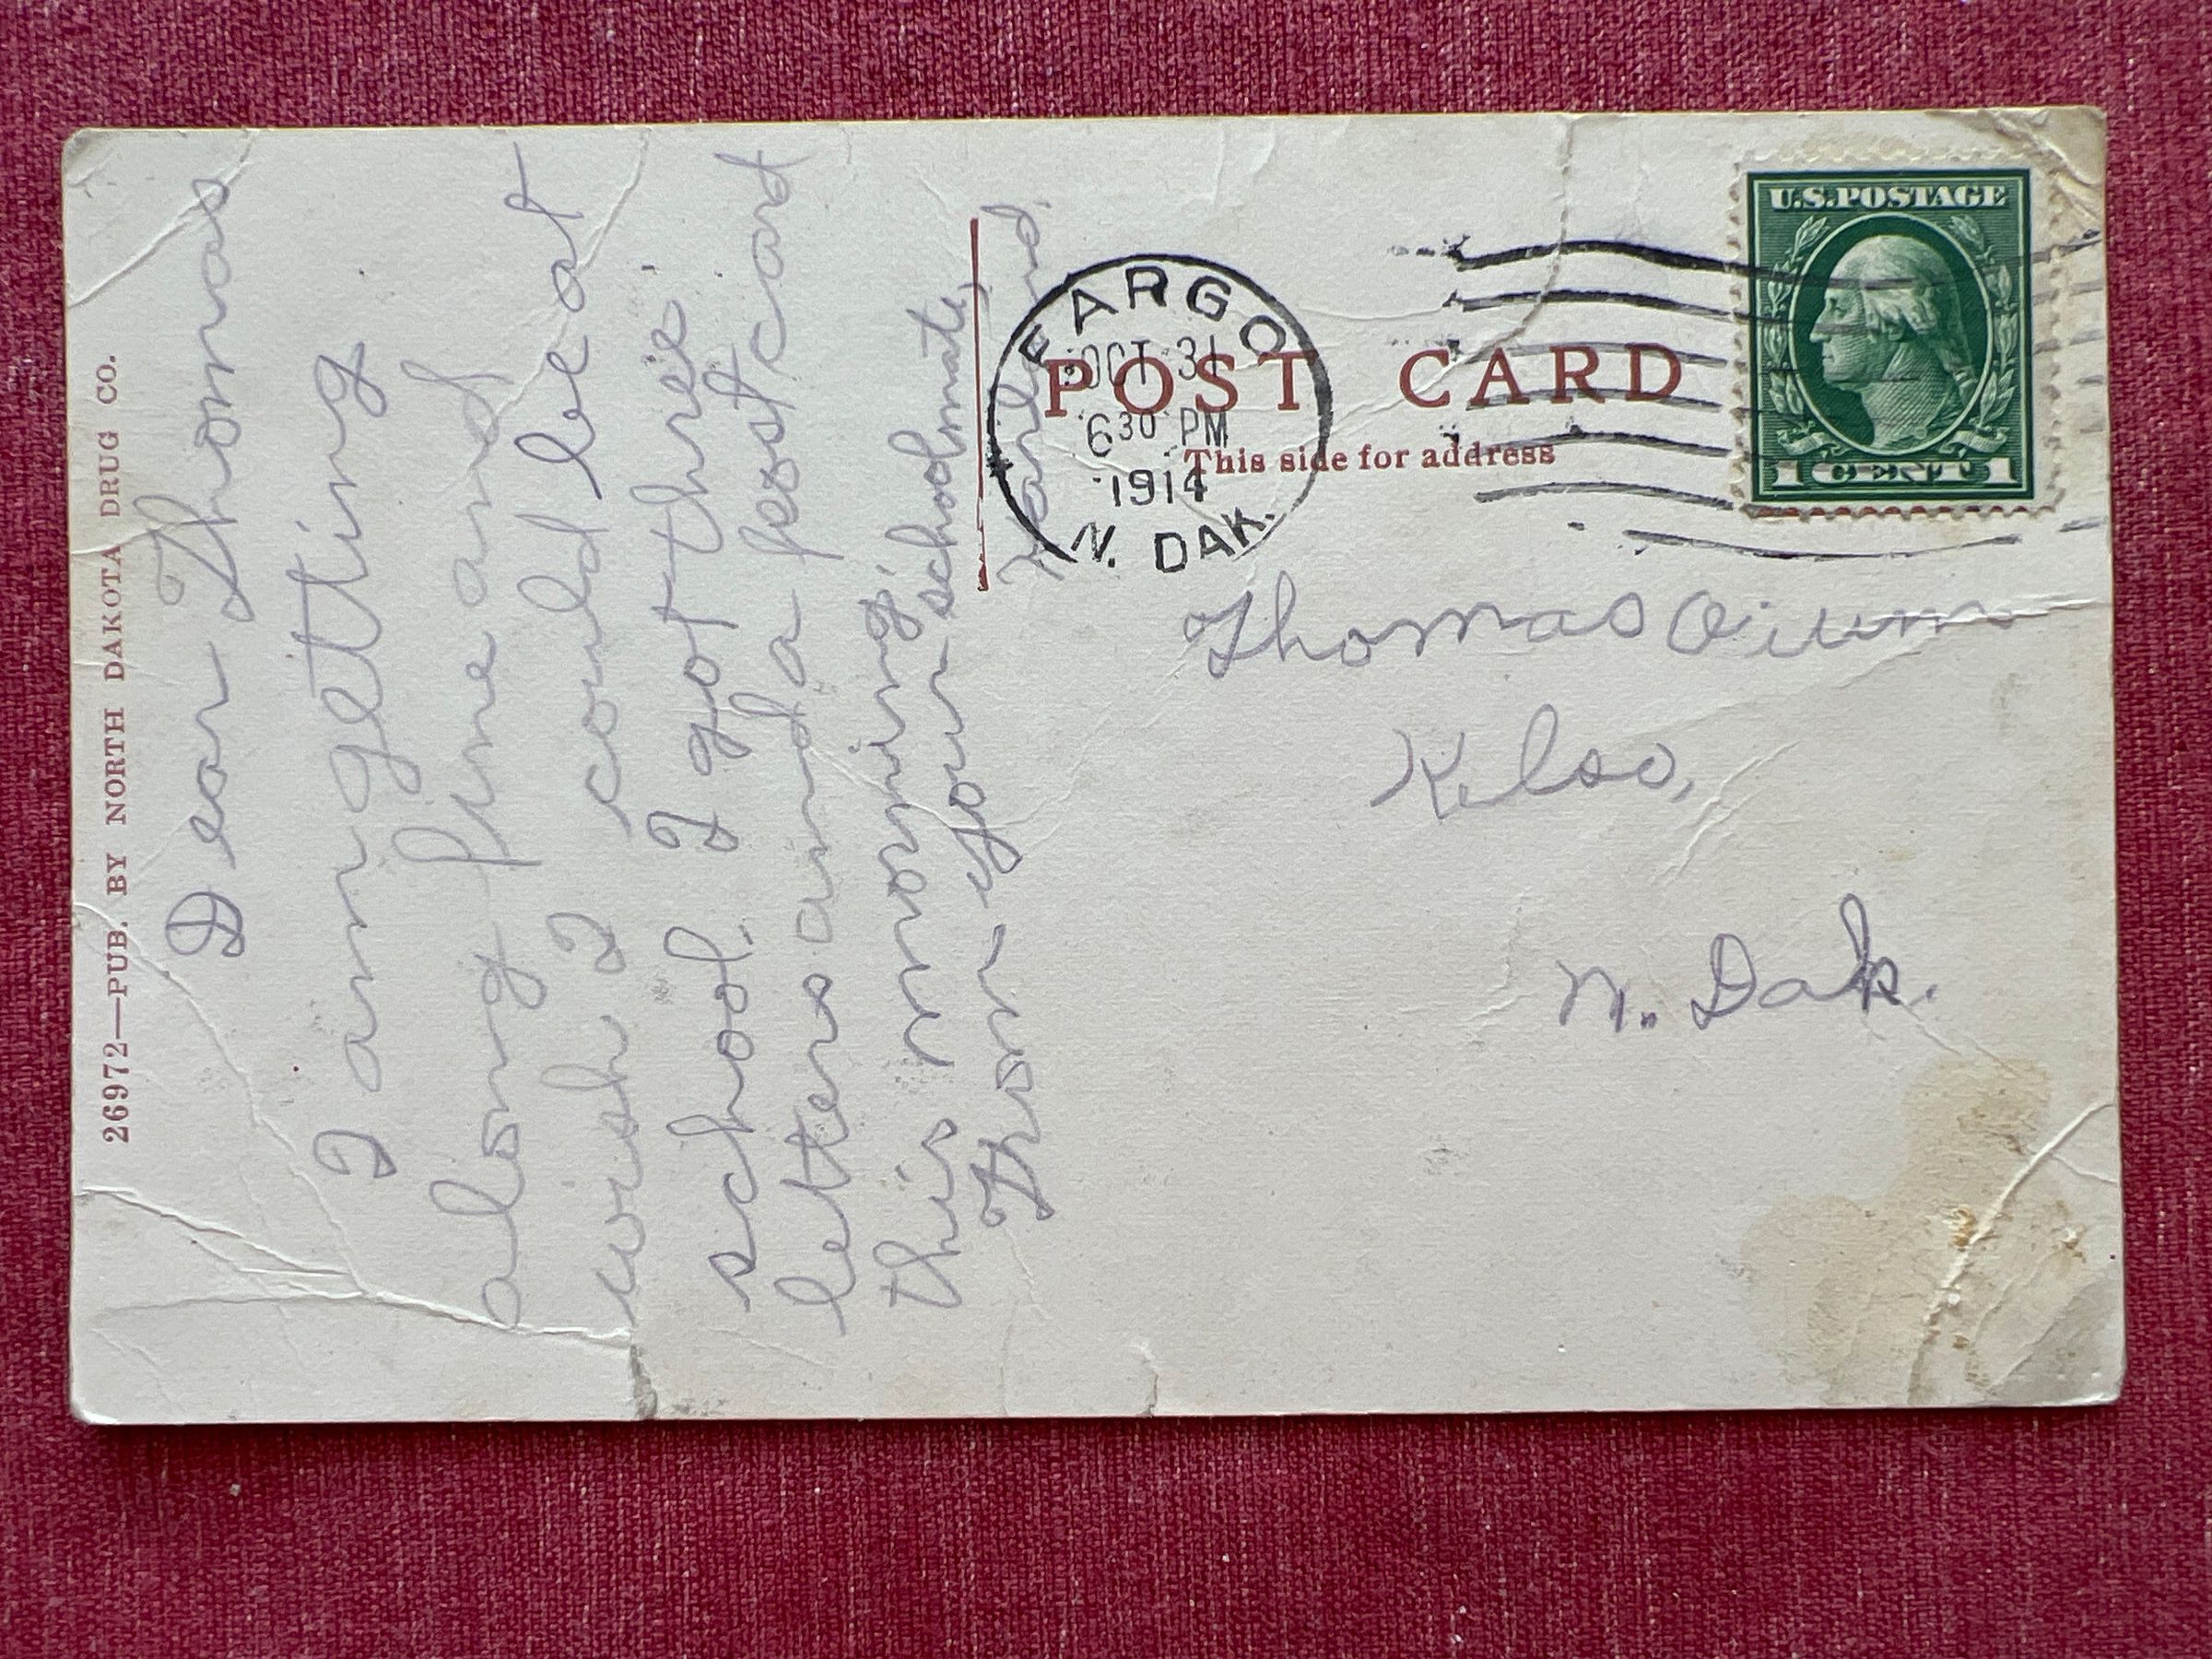 26972—PUB. BY NORTH DAKOTA DRUG CO.
Dear Thomas
I am getting
along fine and
wish I could be at
school. I got three
letters and a post card
this morning.
From your schoolmate,
POST CARD
This side for address
FARGO
OCT 31
6 30 PM
1914
N. DAK.
U.S. POSTAGE
1 CENT 1
Thomas
Kelso,
N. Dak.